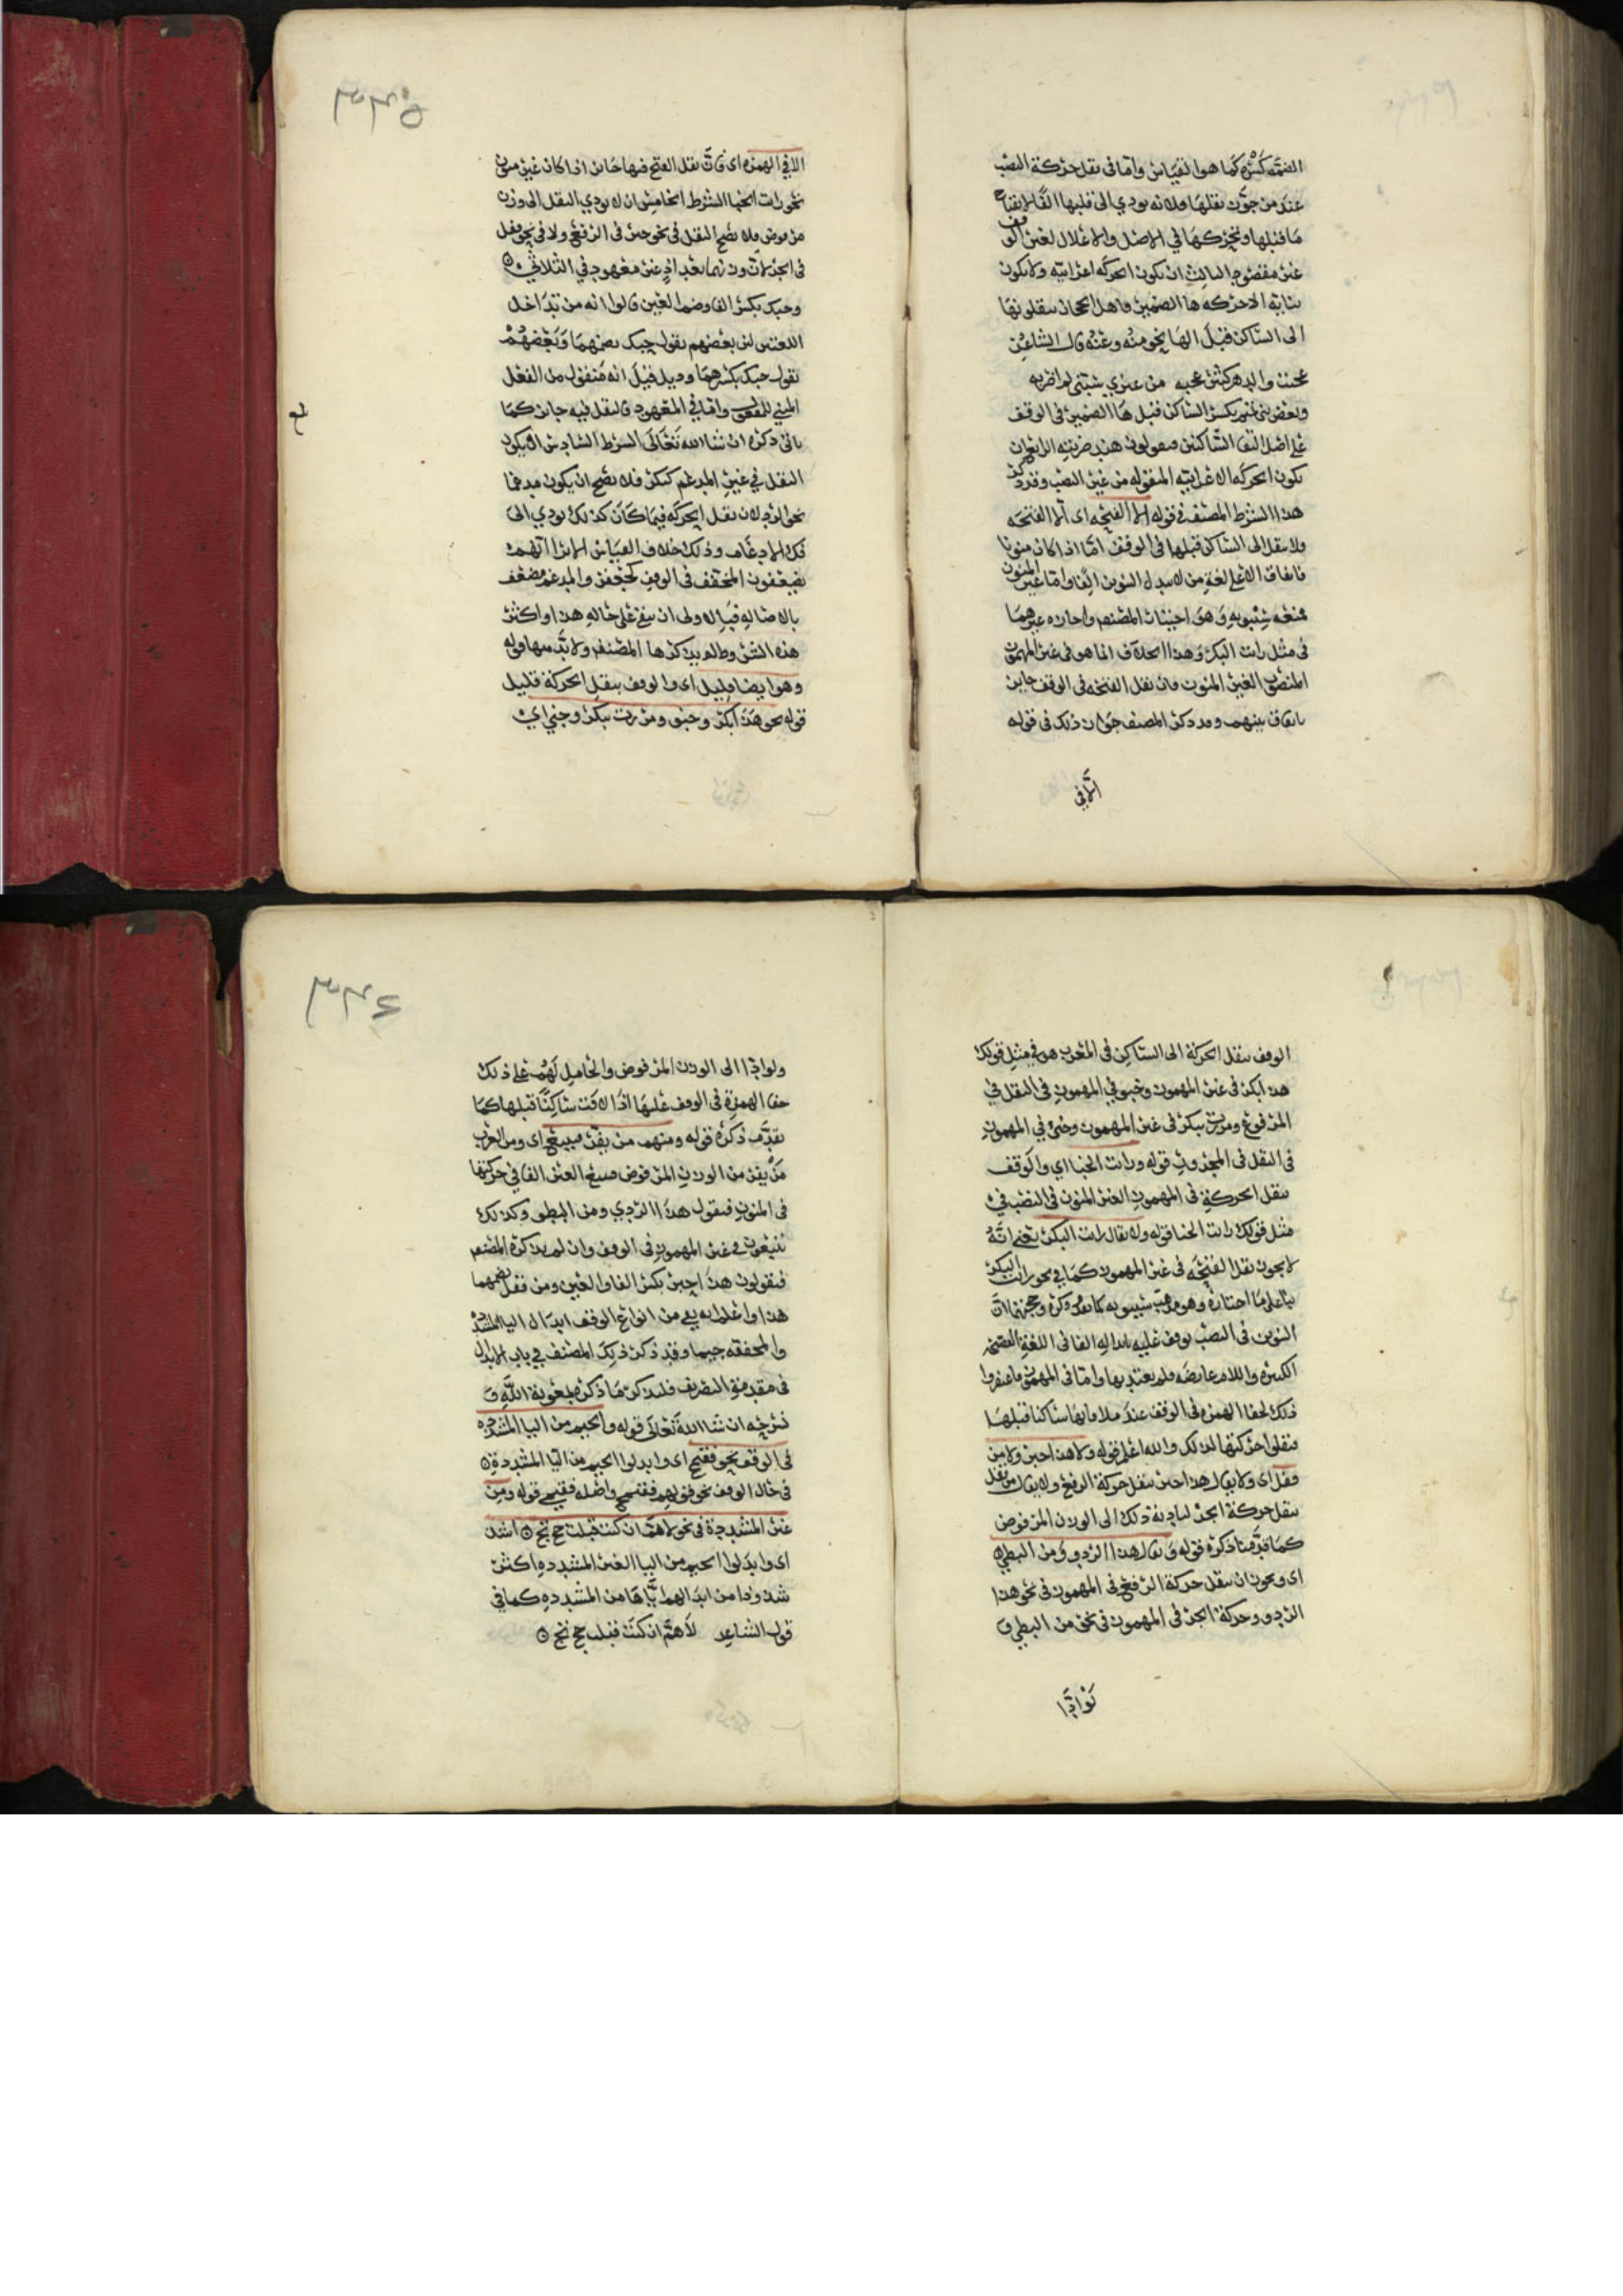 الضمه كسره كما هو القياس واما في نقل حركة النصب
عند من جوز نقلها فلانه يودي الى قلبها الفا لانفتاح
ما قبلها وتحركها في الاصل والاعلال لغير الوقف
غير مفضوم الثالث ان تكون الحركه اعرابيه ولا تكون
بنائيه الا حركه ها الضمير فاهل الحجاز ينقلونها
الى الساكن قبل الها نحو منه وعنه قال الشاعر
عجبت والدهر كثير عجبه من عنزي سبني لم اضربه
وبعض بني تميم يكسر الساكن قبل ها الضمير في الوقف
على اصل التقا الساكنين فيقولون هند ضربته الرابع ان
تكون الحركه الاعرابيه المنقوله من غير النصب وقد ذكر
هذا الشرط المصنف في قوله الا الفتحه اي الا الفتحه
ولا تنقل الى الساكن قبلها في الوقف اما اذا كان منونا
فاتفاق الا على لغة من لا يبدل التنوين الفا واما غير المنون
فمنعه سيبويه وهو اختيار المصنف واجازه غيرهما
في مثل رايت البكر وهذا الخلاف انما هو في غير المهموز
المنصوب الغير المنون فان نقل الفتحه في الوقف جايز
باتفاق بينهم وقد ذكر المصنف جواز ذلك في قوله
الا في
الا في الهمزه اي فان نقل الفتح فيها جايز اذا كان غير منون
نحو رايت الخبا الشرط الخامس ان لا يودي النقل الى وزن
مرفوض فلا يصح النقل في نحو حبر في الرفع ولا في نحو قفل
في الجر لان وزنهما بعد اذ غير معهود في الثلاثي
وحبك بكسر الفا وضم العين قالوا انه من تداخل
اللغتين لان بعضهم يقول حبك بضمهما وبعضهم
يقول حبك بكسرهما ودئل قيل انه منقول من الفعل
المبني للمفعول واما في المهموز فالنقل فيه جايز كما
ياتي ذكره ان شا الله تعالى الشرط السادس ان يكون
النقل في غير المدغم كبكر فلا يصح ان يكون مدغما
نحو الرد لان نقل الحركه فيما كان كذلك يودي الى
فك الادغام وذلك خلاف القياس الا ترا انهم
يضعفون المخفف في الوقف كجعفر والمدغم مضعف
بالاصاله فباله ولى ان يبقى على حاله هذا واكثر
هذه الشروط لم يذكرها المصنف ولا بد منها قوله
وهو ايضا قليل اي والوقف بنقل الحركة قليل
قوله نحو هذا بكر وخبو ومررت ببكر وخبي اي
الوقف بنقل الحركة الى الساكن في المعرب هو في مثل قولك
هذا بكر في غير المهموز وخبو في المهموز في النقل في
المرفوع ومررت ببكر في غير المهموز وخبي في المهموز
في النقل في المجرور قوله ورايت الخبا اي والوقف
بنقل الحركة في المهموز الغير المنون في النصب في
مثل قولك رايت الخبا قوله ولا يقال رايت البكر يعني انه
لا يجوز نقل الفتحه في غير المهموز كما في نحو رايت البكر
بنا على ما اختاره وهو مذهب سيبويه كما تقدم ذكره وحجتهما ان
التنوين في النصب يوقف عليه بابداله الفا في اللغة الفصحى
الكسره واللام عارضه فلم يعتد بها واما في المهموز فاغتفروا
ذلك لخفا الهمزه في الوقف عند ملاقاتها ساكنا قبلها
فنقلوا حركتها لذلك والله اعلم قوله ولا هذا حبر ولا من
قفل اي ولا يقال هذا حبر بنقل حركة الرفع ولا يقال من قفل
بنقل حركة الجر لتاديه ذلك الى الوزن المرفوض
كما قدمنا ذكره قوله ويقال هذا الردو ومن البطي
اي ويجوز ان تنقل حركة الرفع في المهموز في نحو هذا
الردو وحركة الجر في المهموز في نحو من البطي و
نوادا
ولو ادا الى الوزن المرفوض والحامل لهم على ذلك
خفا الهمزة في الوقف عليها اذا لاقت ساكنا قبلها كما
تقدم ذكره قوله ومنهم من يفر فيتبع اي ومن العرب
من يفر من الوزن المرفوض فيتبع العين الفا في حركتها
في المهموز فيقول هذا الردي ومن البطو وكذلك
يتبعون في غير المهموز في الوقف وان لم يذكره المصنف
فيقولون هذا حبر بكسر الفا والعين ومن قفل بضمهما
هذا واعلم انه بقي من انواع الوقف ابدال اليا المشدده
والمخففه جيما وقد ذكر ذلك المصنف في باب الابدال
في مقدمة التصريف فلنذكر ما ذكره بمعونة الله و
نشرحه ان شا الله تعالى قوله والجيم من اليا المشدده
في الوقف نحو فقيمج اي وابدلوا الجيم من اليا المشددة
في حال الوقف نحو قولهم فقيمج واصله فقيمي قوله ومن
غير المشددة في نحو لاهم ان كنت قبلت حجتج اشذ
اي وابدلوا الجيم من اليا الغير المشدده اكثر
شذوذا من ابدالهم اياها من المشدده كما في
قول الشاعر لاهم ان كنت قبلت حجتج